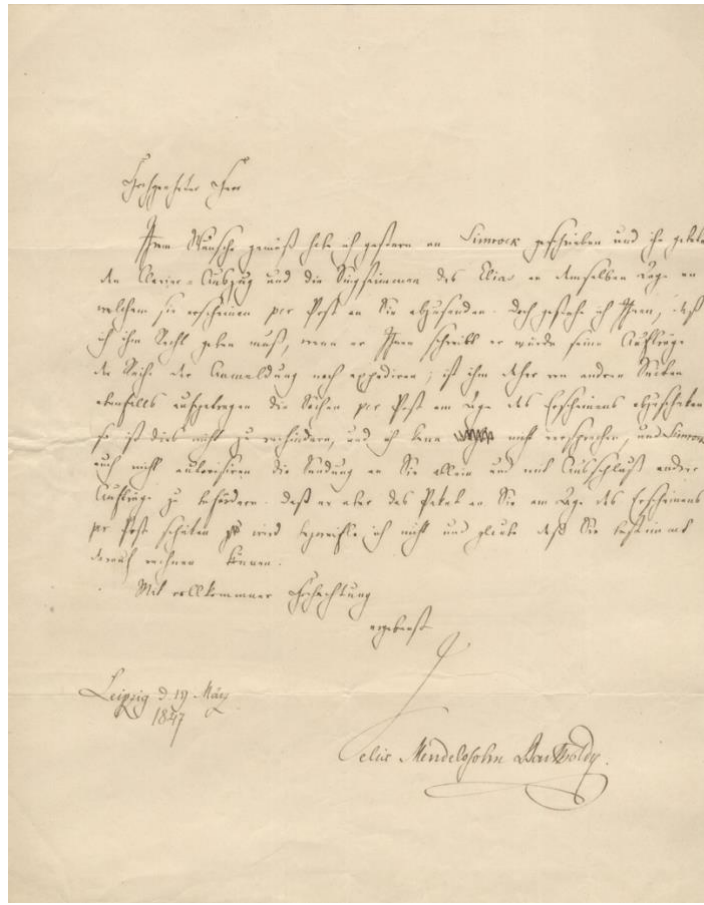 Hochgeehrter Herr
Ihrem Wunsche gemäß habe ich gestern an Simrock geschrieben und ihn gebeten
den Clavier-Auszug und die Singstimmen des Elias an demselben Tage an
welchem sie erscheinen per Post an Sie abzusenden. Doch gestehe ich Ihnen, daß
ich ihm Recht geben muß, wenn er Ihnen schreibt er würde seine Aufträge
der Reihe der Anmeldung nach expediren; ist ihm daher von andren Seiten
ebenfalls aufgetragen die Sachen per Post am Tage des Erscheinens abzuschicken
so ist dies nicht zu verhindern, und ich kann nicht versprechen, und Simrock
auch nicht autorisiren die Sendung an Sie allein und mit Ausschluß andrer
Aufträge zu befördern. Daß er aber das Paket an Sie am Tage des Erscheinens
per Post schicken wird bezweifle ich nicht und glaube daß Sie bestimmt
darauf rechnen können.
Mit vollkommner Hochachtung
ergebenst
Leipzig d. 19 März
1847
Felix Mendelssohn Bartholdy.